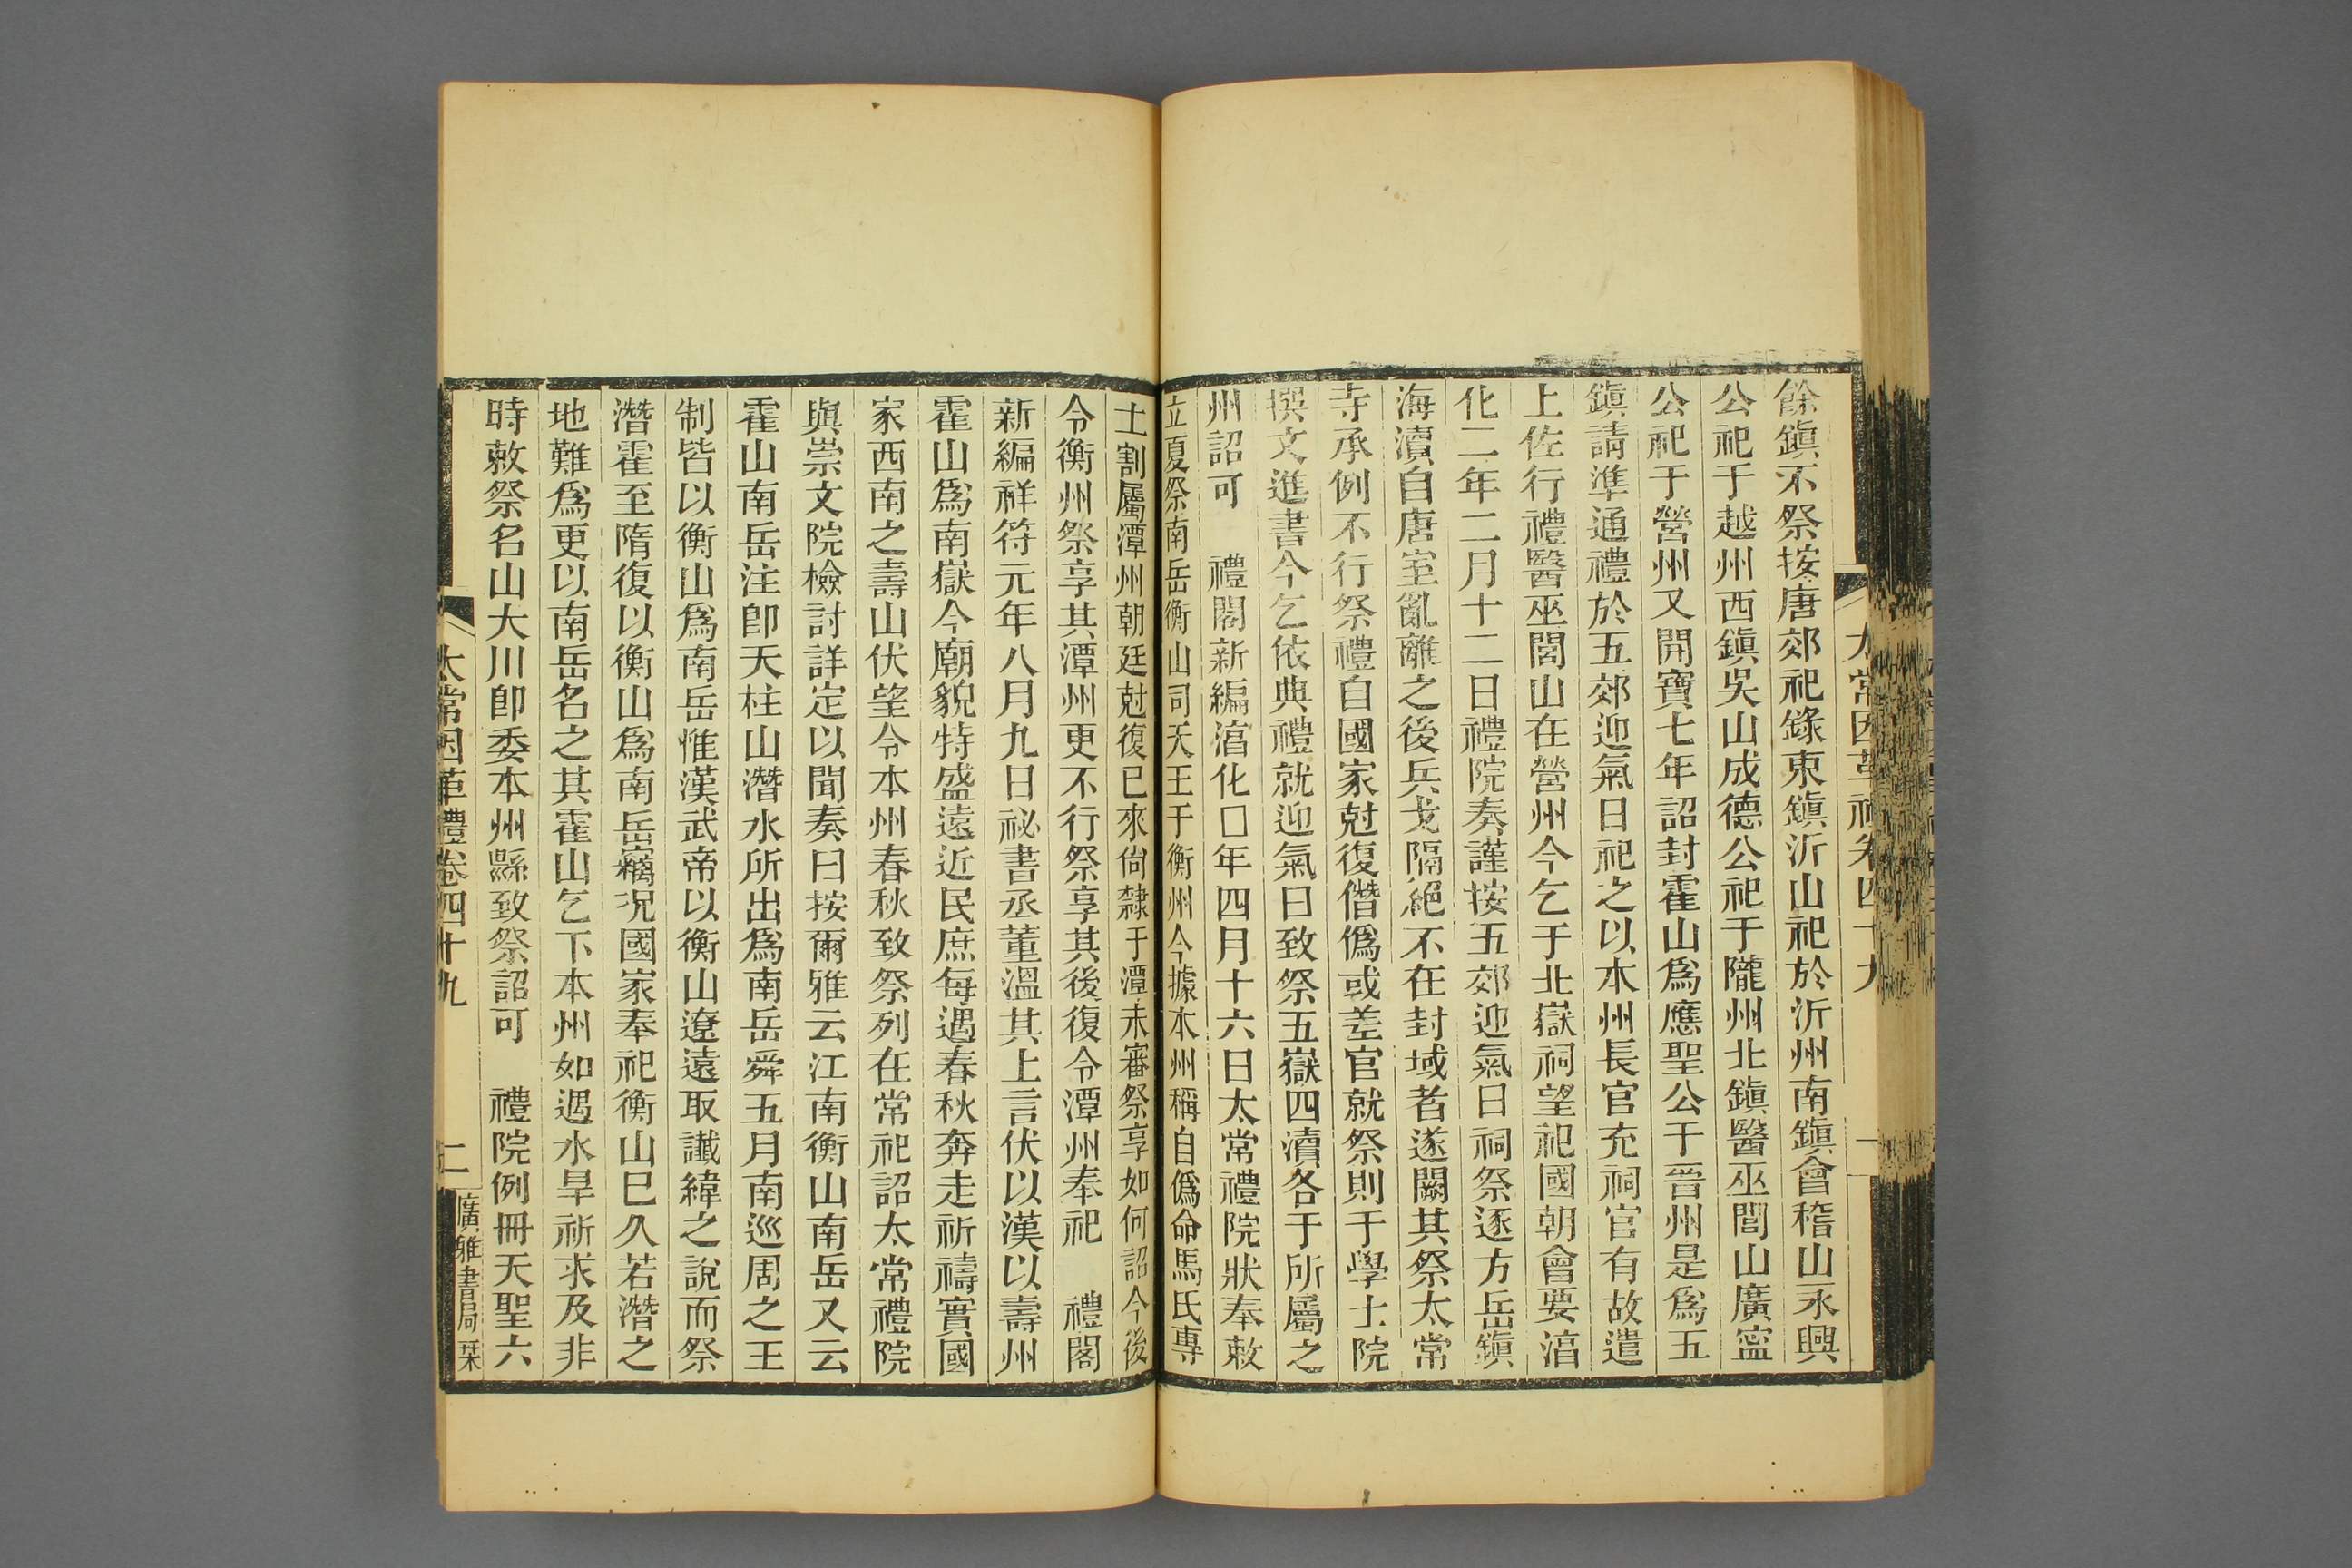 太常因革禮卷四十九
一
餘鎭不祭按唐郊祀錄東鎭沂山祀於沂州南鎭會稽山永興
公祀于越州西鎭吳山成德公祀于隴州北鎭醫巫閭山廣寍
公祀于營州又開寶七年詔封霍山爲應聖公于晉州是爲五
鎭請準通禮於五郊迎氣日祀之以本州長官充祠官有故遣
上佐行禮醫巫閭山在營州今乞于北嶽祠望祀國朝會要湻
化二年二月十二日禮院奏謹按五郊迎氣日祠祭逐方岳鎭
海瀆自唐室亂離之後兵戈隔絕不在封域者遂闕其祭太常
寺承例不行祭禮自國家尅復僭僞或差官就祭則于學士院
撰文進書今乞依典禮就迎氣日致祭五嶽四瀆各于所屬之
州詔可　禮閣新編湻化□年四月十六日太常禮院狀奉敕
立夏祭南岳衡山司天王于衡州今據本州稱自僞命馬氏專
土割屬潭州朝廷尅復已來尙隸于潭未審祭享如何詔今後
令衡州祭享其潭州更不行祭享其後復令潭州奉祀　禮閣
新編祥符元年八月九日祕書丞董溫其上言伏以漢以壽州
霍山爲南嶽今廟貌特盛遠近民庶每遇春秋奔走祈禱實國
家西南之壽山伏望令本州春秋致祭列在常祀詔太常禮院
與崇文院檢討詳定以聞奏曰按爾雅云江南衡山南岳又云
霍山南岳注卽天柱山潛水所出爲南岳舜五月南巡周之王
制皆以衡山爲南岳惟漢武帝以衡山遼遠取讖緯之說而祭
潛霍至隋復以衡山爲南岳竊況國家奉祀衡山巳久若潛之
地難爲更以南岳名之其霍山乞下本州如遇水旱祈求及非
時敕祭名山大川卽委本州縣致祭詔可　禮院例冊天聖六
太常因革禮卷四十九
二
廣雅書局栞